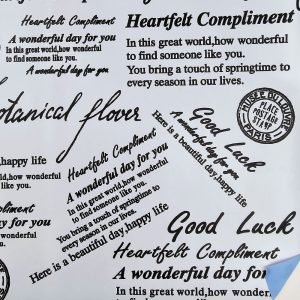 Heartfelt Compliment
A wonderful day for you
In this great world,how wonderful
to find someone like you.
A wonderful day for you
Heartfelt Compliment
In this great world,how wonderful
to find someone like you.
You bring a touch of springtime to
every season in our lives.
MUSEE DU LOUVRE
PLACE
POSTAGE
STAMP
PARIS
botanical flover
Good Luck
A wonderful day for you
Here is a beautiful day,happy life
,happy life
liment
for you
wonderful
you.
Heartfelt Compliment
A wonderful day for you
In this great world,how wonderful
to find someone like you.
You bring a touch of springtime to
every season in our lives.
Here is a beautiful day,happy life
Good Luck
Heartfelt Compliment
A wonderful day for
In this great world,how wonderful